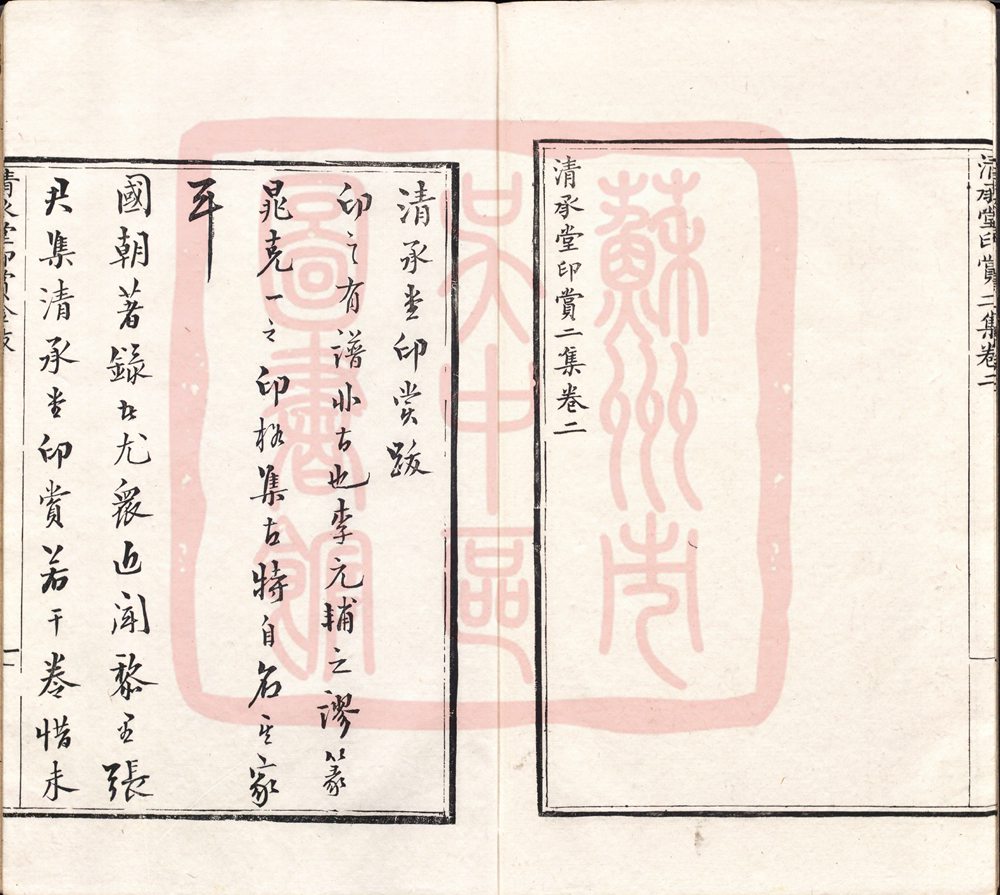 清承堂印賞二集卷二
清承堂印賞二集卷二
清承堂印賞跋
印之有譜非古也李元輔之謬篆
晁克一之印格集古特自名其家
耳
國朝著錄者尤衆近聞黎玉張
君集清承堂印賞若干卷惜未
清承堂印賞 跋
一
蘇州市
吴中區
圖書館